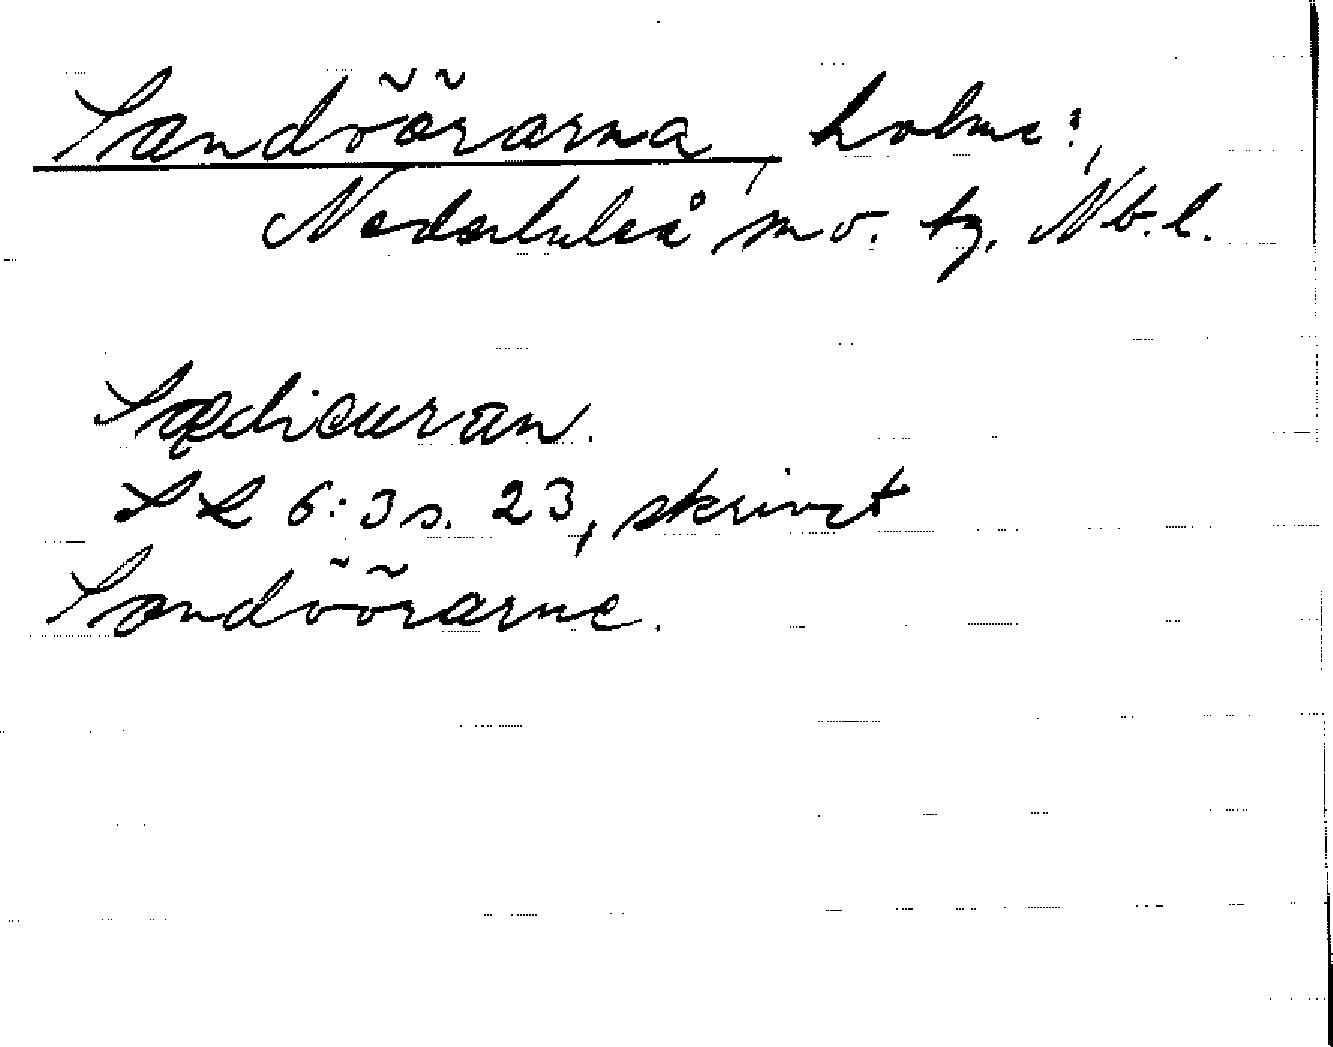 Sandöörarna, holme:,
Nederluleå sn o. tg. Nb. l.
SL 6:3 s. 23, skrivet
Sandöörarne.